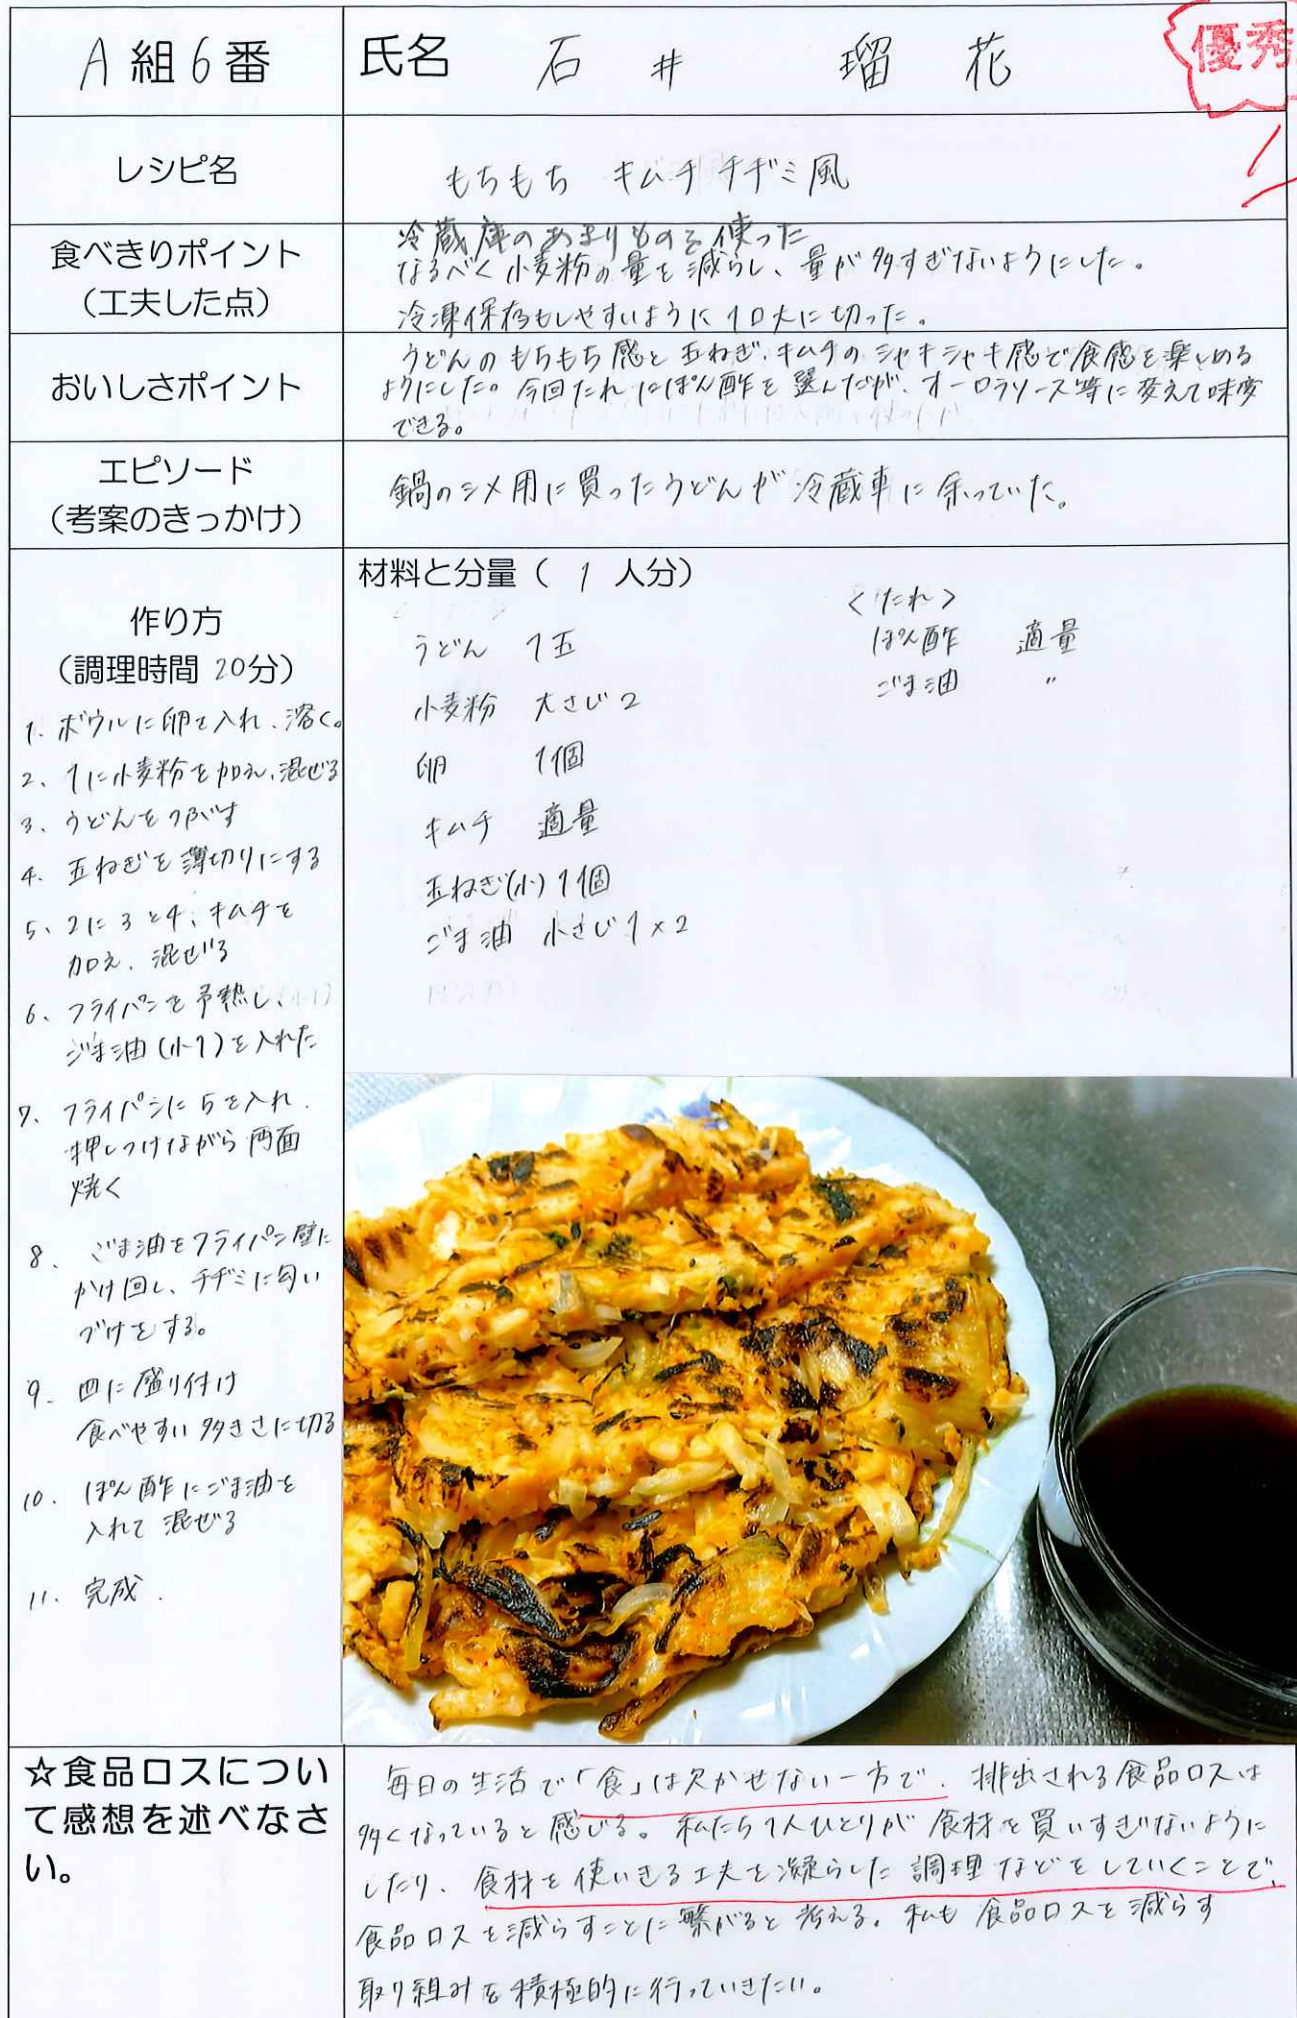 A組6番
氏名 石井 瑠花
優秀
レシピ名
もちもち キムチチヂミ風
食べきりポイント
（工夫した点）
冷蔵庫のあまりものを使った
なるべく小麦粉の量を減らし、量が多すぎないようにした。
冷凍保存もしやすいように1口大に切った。
おいしさポイント
うどんのもちもち感と玉ねぎ、キムチのシャキシャキ感で食感を楽しめる
ようにした。今回たれにぽん酢を選んだが、オーロラソース等に変えて味変
できる。
エピソード
（考案のきっかけ）
鍋のシメ用に買ったうどんが冷蔵車に余っていた。
作り方
（調理時間 20分）
1. ボウルに卵を入れ、溶く。
2、1に小麦粉を加え、混ぜる
3、うどんをつぶす
4. 玉ねぎを薄切りにする
5、2に3と4、キムチを
加え、混ぜる
6、フライパンを予熱し、
ごま油(小1)を入れた
7、フライパンに5を入れ、
押しつけながら両面
焼く
8、ごま油をフライパン壁に
かけ回し、チヂミに匂い
づけをする。
9. 皿に盛り付け
食べやすい多きさに切る
10. ぽん酢にごま油を
入れて混ぜる
11. 完成.
材料と分量（ 1 人分）
うどん 1玉
小麦粉 大さじ2
卵 1個
キムチ 適量
玉ねぎ(小) 1個
ごま油 小さじ1×2
<たれ>
ぽん酢 適量
ごま油 〃
☆食品ロスについ
て感想を述べなさ
い。
毎日の生活で「食」は欠かせない一方で、排出される食品ロスは
多くなっていると感じる。私たち1人ひとりが食材を買いすぎないように
したり、食材を使いきる工夫を凝らした調理などをしていくことで、
食品ロスを減らすことに繋がると考える。私も食品ロスを減らす
取り組みを積極的に行っていきたい。